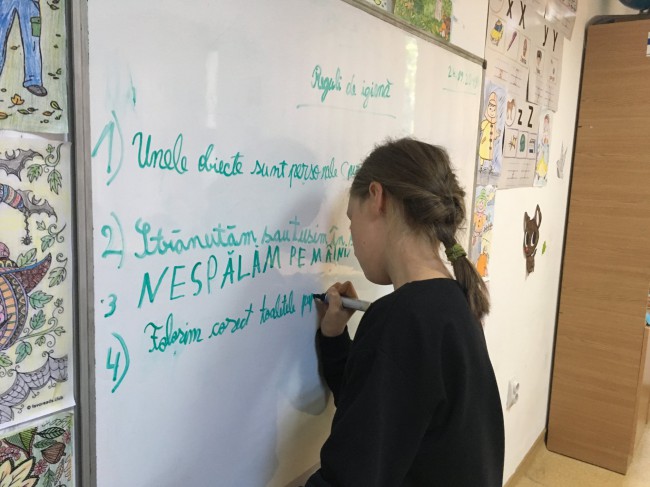 Reguli de igienă
1) Unele obiecte sunt personale
2) Strănutăm sau tușim în
3 NESPĂLĂM PE MÂINI
4) Folosim corect toaletele
X x
Y Y
Z z